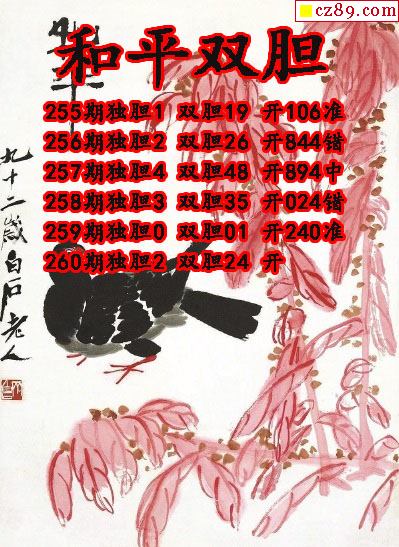 cz89.com
和平双胆
255期独胆1 双胆19 开106准
256期独胆2 双胆26 开844错
257期独胆4 双胆48 开894中
258期独胆3 双胆35 开024错
259期独胆0 双胆01 开240准
260期独胆2 双胆24 开
九十二岁白石老人